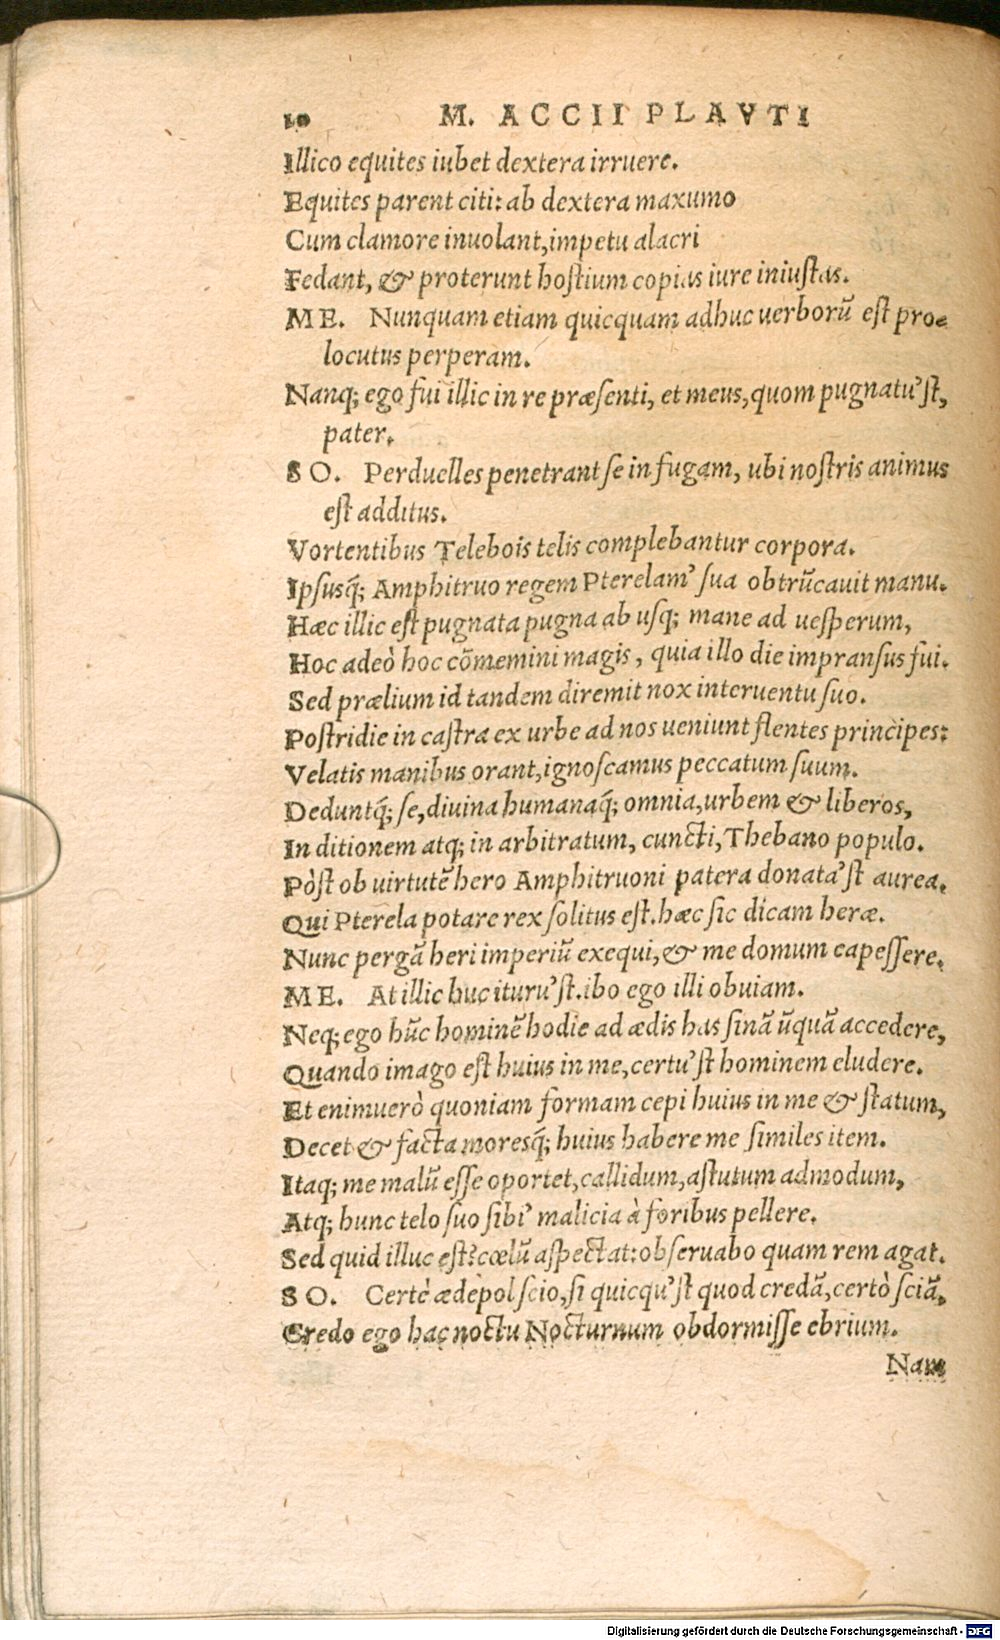 10 M. ACCII PLAVTI
Illico equites iubet dextera irruere.
Equites parent citi: ab dextera maxumo
Cum clamore inuolant, impetu alacri
Fedant, & proterunt hostium copias iure iniustas.
ME. Nunquam etiam quicquam adhuc uerborũ est pro-
locutus perperam.
Nanq; ego fui illic in re præsenti, et meus, quom pugnatu'st,
pater.
SO. Perduelles penetrant se in fugam, ubi nostris animus
est additus.
Vortentibus Telebois telis complebantur corpora.
Ipsusq́; Amphitruo regem Pterelam' sua obtrũcauit manu.
Hæc illic est pugnata pugna ab usq; mane ad uesperum,
Hoc adeò hoc cõmemini magis, quia illo die impransus fui.
Sed prælium id tandem diremit nox interuentu suo.
Postridie in castra ex urbe ad nos ueniunt flentes principes:
Velatis manibus orant, ignoscamus peccatum suum.
Deduntq́; se, diuina humanaq́; omnia, urbem & liberos,
In ditionem atq; in arbitratum, cuncti, Thebano populo.
Pòst ob uirtutẽ hero Amphitruoni patera donata'st aurea.
Qui Pterela potare rex solitus est. hæc sic dicam heræ.
Nunc pergã heri imperiũ exequi, & me domum capessere.
ME. At illic huc ituru'st. ibo ego illi obuiam.
Neq; ego hũc hominẽ hodie ad ædis has sinã ũquã accedere,
Quando imago est huius in me, certu'st hominem eludere.
Et enimuerò quoniam formam cepi huius in me & statum,
Decet & facta moresq́; huius habere me similes item.
Itaq; me malũ esse oportet, callidum, astutum admodum,
Atq; hunc telo suo sibi' malicia à foribus pellere.
Sed quid illuc est? cœlũ aspectat: obseruabo quam rem agat.
SO. Certè ædepol scio, si quicqu'st quod credã, certò sciã,
Credo ego hac noctu Nocturnum obdormisse ebrium.
Nam
Digitalisierung gefördert durch die Deutsche Forschungsgemeinschaft - DFG